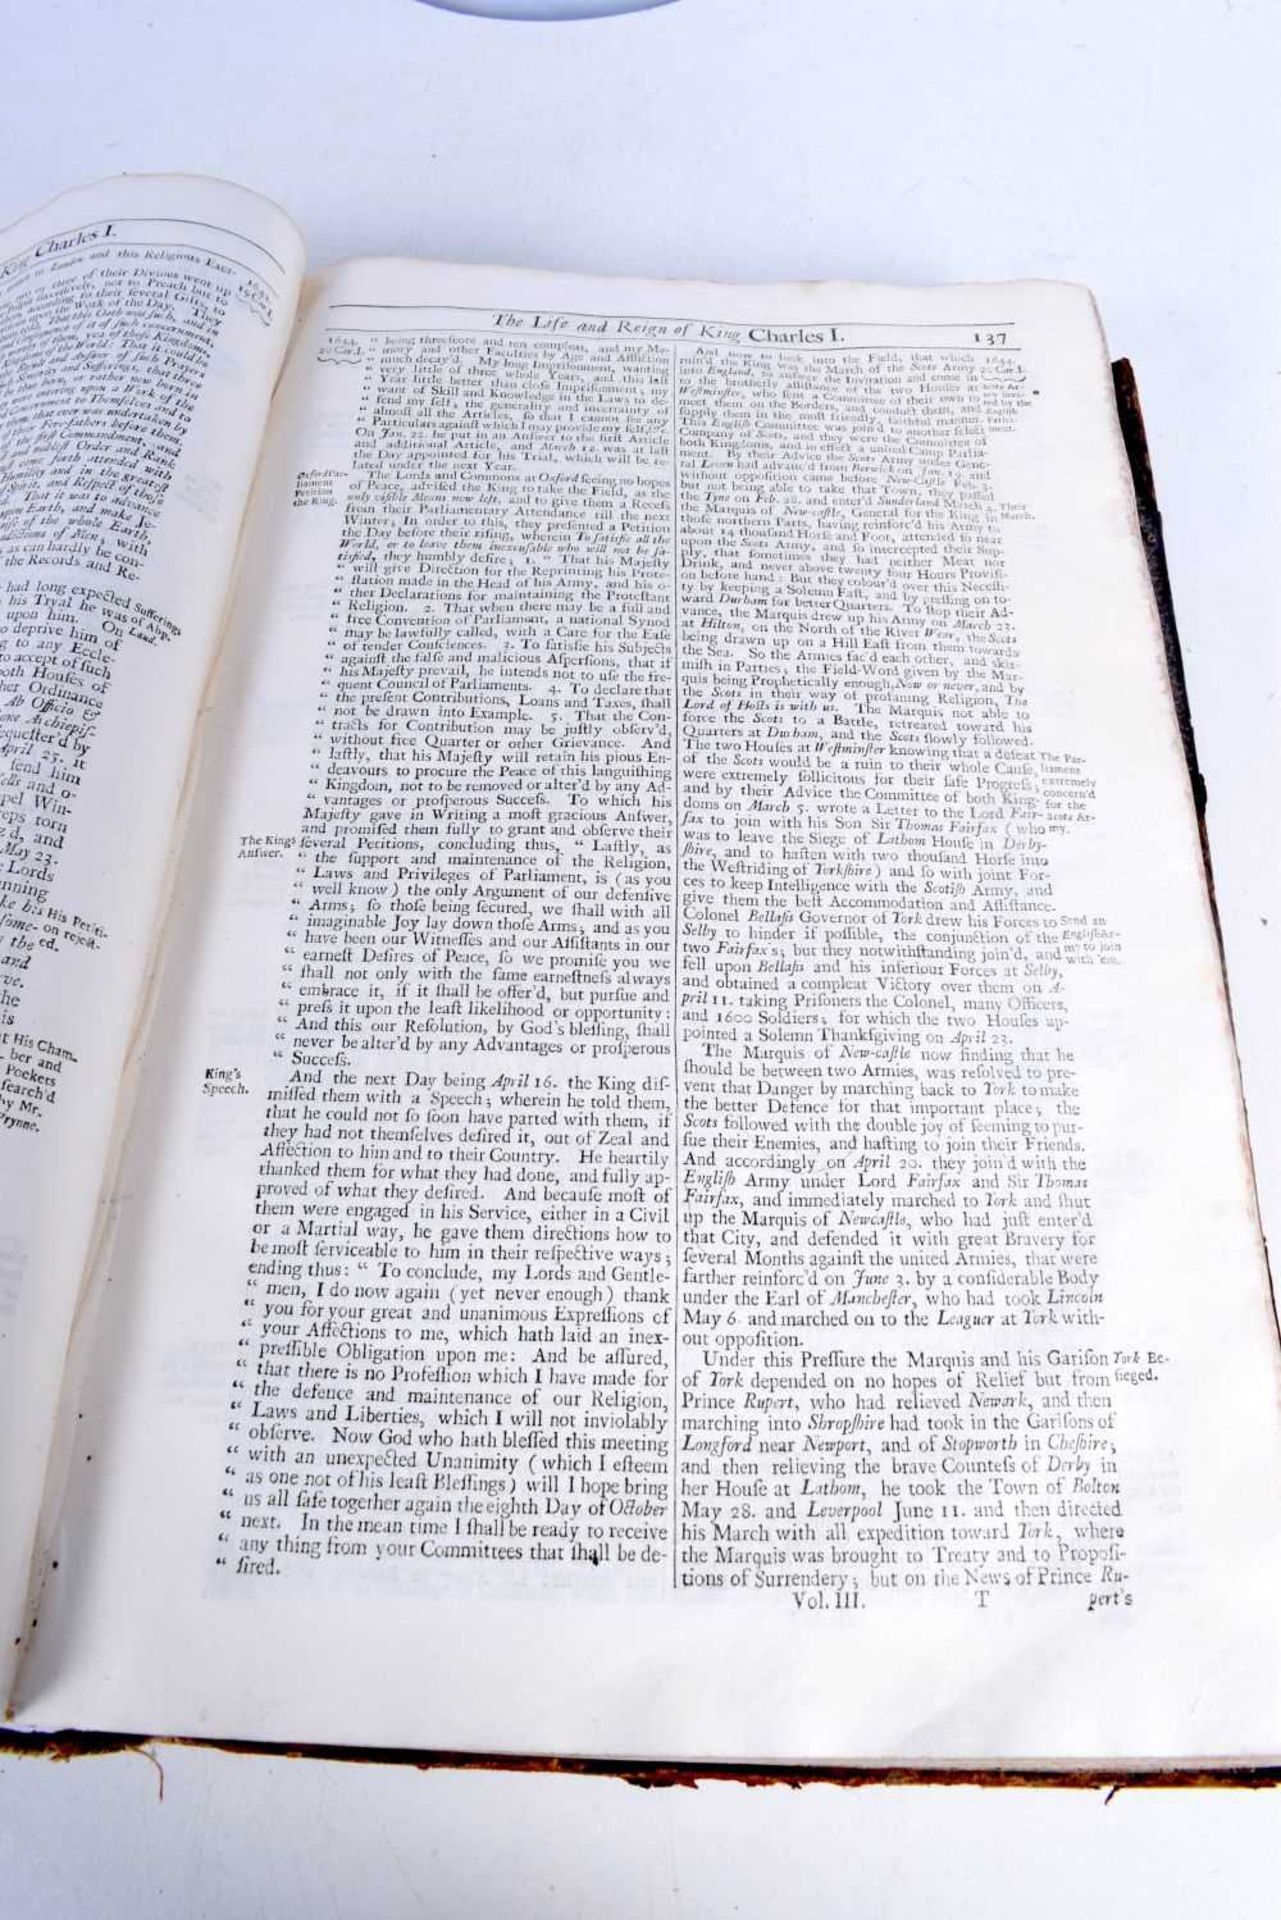 King Charles I.
and this Religious Exer-
two or three of their Divines went up
not to Preach but to
according to their several Gifts, to
the Work of the Day. They
That it was to advance
upon Earth, and make Je-
of the whole Earth,
of Men, with
as can hardly be con-
the Records and Re-
had long expected Sufferings
his Tryal he was of Abp.
upon him. On Laud.
to deprive him of
to any Eccle-
to accept of such
both Houses of
her Ordinance
Ab Officio &
sequester'd by
April 25. it
send him
and o-
pel Win-
torn
and
May 23.
Lords
his His Petiti-
some- on reject-
the ed.
and
he
is
His Cham-
ber and
Pockets
search'd
by Mr.
Prynne.
The Life and Reign of King Charles I. 137
1644.
20 Car. I.
“ being threescore and ten compleat, and my Me-
“ mory and other Faculties by Age and Affliction
“ much decay'd. My long Imprisonment, wanting
“ very little of three whole Years, and this last
“ Year little better than close Imprisonment; my
“ want of Skill and Knowledge in the Laws to de-
“ fend my self; the generality and uncertainty of
“ almost all the Articles, so that I cannot see any
“ Particulars against which I may provide my self, &c.
On Jan. 22. he put in an Answer to the first Article
and additional Article, and March 12. was at last
the Day appointed for his Trial, which will be re-
lated under the next Year.
Oxford Par-
liament
Petition
the King.
The Lords and Commons at Oxford seeing no hopes
of Peace, advised the King to take the Field, as the
only visible Means now left, and to give them a Recess
from their Parliamentary Attendance till the next
Winter; In order to this, they presented a Petition
the Day before their rising, wherein To satisfie all the
World, or to leave them inexcusable who will not be sa-
tisfied, they humbly desire; 1. “ That his Majesty
“ will give Direction for the Reprinting his Prote-
“ station made in the Head of his Army, and his o-
“ ther Declarations for maintaining the Protestant
“ Religion. 2. That when there may be a full and
“ free Convention of Parliament, a national Synod
“ may be lawfully called, with a Care for the Ease
“ of tender Consciences. 3. To satisfie his Subjects
“ against the false and malicious Aspersions, that if
“ his Majesty prevail, he intends not to use the fre-
“ quent Council of Parliaments. 4. To declare that
“ the present Contributions, Loans and Taxes, shall
“ not be drawn into Example. 5. That the Con-
“ tracts for Contribution may be justly observ'd,
“ without free Quarter or other Grievance. And
“ lastly, that his Majesty will retain his pious En-
“ deavours to procure the Peace of this languishing
“ Kingdom, not to be removed or alter'd by any Ad-
“ vantages or prosperous Success. To which his
Majesty gave in Writing a most gracious Answer,
and promised them fully to grant and observe their
The Kings
Answer.
several Petitions, concluding thus, “ Lastly, as
“ the support and maintenance of the Religion,
“ Laws and Privileges of Parliament, is (as you
“ well know) the only Argument of our defensive
“ Arms; so those being secured, we shall with all
“ imaginable Joy lay down those Arms; and as you
“ have been our Witnesses and our Assistants in our
“ earnest Desires of Peace, so we promise you we
“ shall not only with the same earnestness always
“ embrace it, if it shall be offer'd, but pursue and
“ press it upon the least likelihood or opportunity:
“ And this our Resolution, by God's blessing, shall
“ never be alter'd by any Advantages or prosperous
“ Success.
King's
Speech.
And the next Day being April 16. the King dis-
missed them with a Speech; wherein he told them,
that he could not so soon have parted with them, if
they had not themselves desired it, out of Zeal and
Affection to him and to their Country. He heartily
thanked them for what they had done, and fully ap-
proved of what they desired. And because most of
them were engaged in his Service, either in a Civil
or a Martial way, he gave them directions how to
be most serviceable to him in their respective ways;
ending thus: “ To conclude, my Lords and Gentle-
“ men, I do now again (yet never enough) thank
“ you for your great and unanimous Expressions of
“ your Affections to me, which hath laid an inex-
“ pressible Obligation upon me: And be assured,
“ that there is no Profession which I have made for
“ the defence and maintenance of our Religion,
“ Laws and Liberties, which I will not inviolably
“ observe. Now God who hath blessed this meeting
“ with an unexpected Unanimity (which I esteem
“ as one not of his least Blessings) will I hope bring
“ us all safe together again the eighth Day of October
“ next. In the mean time I shall be ready to receive
“ any thing from your Committees that shall be de-
“ sired.
And now to look into the Field, that which
ruin'd the King was the March of the Scots Army
into England, to answer the Invitation and come in
to the brotherly assistance of the two Houses at
Westminster, who sent a Committee of their own to
meet them on the Borders, and conduct them, and
supply them in the most friendly, faithful manner.
This English Committee was join'd to another select
Company of Scots, and they were the Committee of
both Kingdoms, and in effect a united Camp Parlia-
ment. By their Advice the Scots Army under Gene-
ral Lesley had advanc'd from Berwick on Jan. 19. and
without opposition came before New-Castle Feb. 3.
but not being able to take that Town, they passed
the Tyne on Feb. 28. and enter'd Sunderland March 4.
the Marquis of New-castle, General for the King in
those northern Parts, having reinforc'd his Army to
about 14 thousand Horse and Foot, attended so near
upon the Scots Army, and so intercepted their Sup-
ply, that sometimes they had neither Meat nor
Drink, and never above twenty four Hours Provisi-
on before hand: But they colour'd over this Necessi-
ty by keeping a Solemn Fast, and by pressing on to-
ward Durham for better Quarters. To stop their Ad-
vance, the Marquis drew up his Army on March 23.
at Hilton, on the North of the River Wear, the Scots
being drawn up on a Hill East from them towards
the Sea. So the Armies fac'd each other, and skir-
mish in Parties; the Field-Word given by the Mar-
quis being Prophetically enough, Now or never, and by
the Scots in their way of profaning Religion, The
Lord of Hosts is with us. The Marquis not able to
force the Scots to a Battle, retreated toward his
Quarters at Durham, and the Scots slowly followed.
The two Houses at Westminster knowing that a defeat
of the Scots would be a ruin to their whole Cause,
were extremely sollicitous for their safe Progress;
and by their Advice the Committee of both King-
doms on March 5. wrote a Letter to the Lord Fair-
fax to join with his Son Sir Thomas Fairfax (who
was to leave the Siege of Lathom House in Derby-
shire, and to hasten with two thousand Horse into
the Westriding of Yorkshire) and so with joint For-
ces to keep Intelligence with the Scotish Army, and
give them the best Accommodation and Assistance.
Colonel Bellasis Governor of York drew his Forces to
Selby to hinder if possible, the conjunction of the
two Fairfax's; but they notwithstanding join'd, and
fell upon Bellasis and his inferiour Forces at Selby,
and obtained a compleat Victory over them on A-
pril 11. taking Prisoners the Colonel, many Officers,
and 1600 Soldiers; for which the two Houses ap-
pointed a Solemn Thanksgiving on April 23.
The Marquis of New-castle now finding that he
should be between two Armies, was resolved to pre-
vent that Danger by marching back to York to make
the better Defence for that important place; the
Scots followed with the double joy of seeming to pur-
sue their Enemies, and hasting to join their Friends.
And accordingly on April 20. they join'd with the
English Army under Lord Fairfax and Sir Thomas
Fairfax, and immediately marched to York and shut
up the Marquis of Newcastle, who had just enter'd
that City, and defended it with great Bravery for
several Months against the united Armies, that were
farther reinforc'd on June 3. by a considerable Body
under the Earl of Manchester, who had took Lincoln
May 6. and marched on to the Leaguer at York with-
out opposition.
Under this Pressure the Marquis and his Garison
of York depended on no hopes of Relief but from
Prince Rupert, who had relieved Newark, and then
marching into Shropshire had took in the Garisons of
Longford near Newport, and of Stopworth in Cheshire;
and then relieving the brave Countess of Derby in
her House at Lathom, he took the Town of Bolton
May 28. and Leverpool June 11. and then directed
his March with all expedition toward York, where
the Marquis was brought to Treaty and to Proposi-
tions of Surrendery; but on the News of Prince Ru-
1644.
20 Car. I.
Scots Ar-
my invi-
ted by the
English
Parlia-
ment.
Their
March.
The Par-
liament
extremely
concern'd
for the
Scots Ar-
my.
Send an
English Ar-
my to join
with 'em.
York Be-
sieged.
Vol. III. T pert's